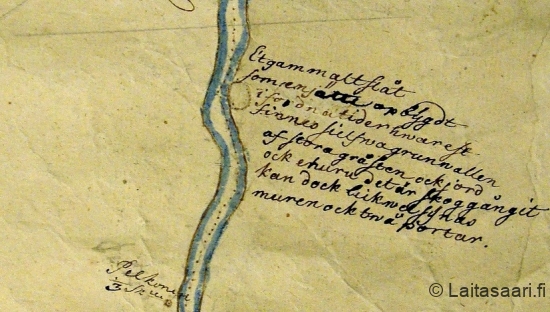 Et gammalt slåt
som en
opbygdt
i fordna tider hwarest
finnes sielfwa grunnallen
af stora gråsten ock jord
ock ehuru det är skoggångit
kan dock likwel synas
muren ock twå portar.
Pelkonen
© Laitasaari.fi